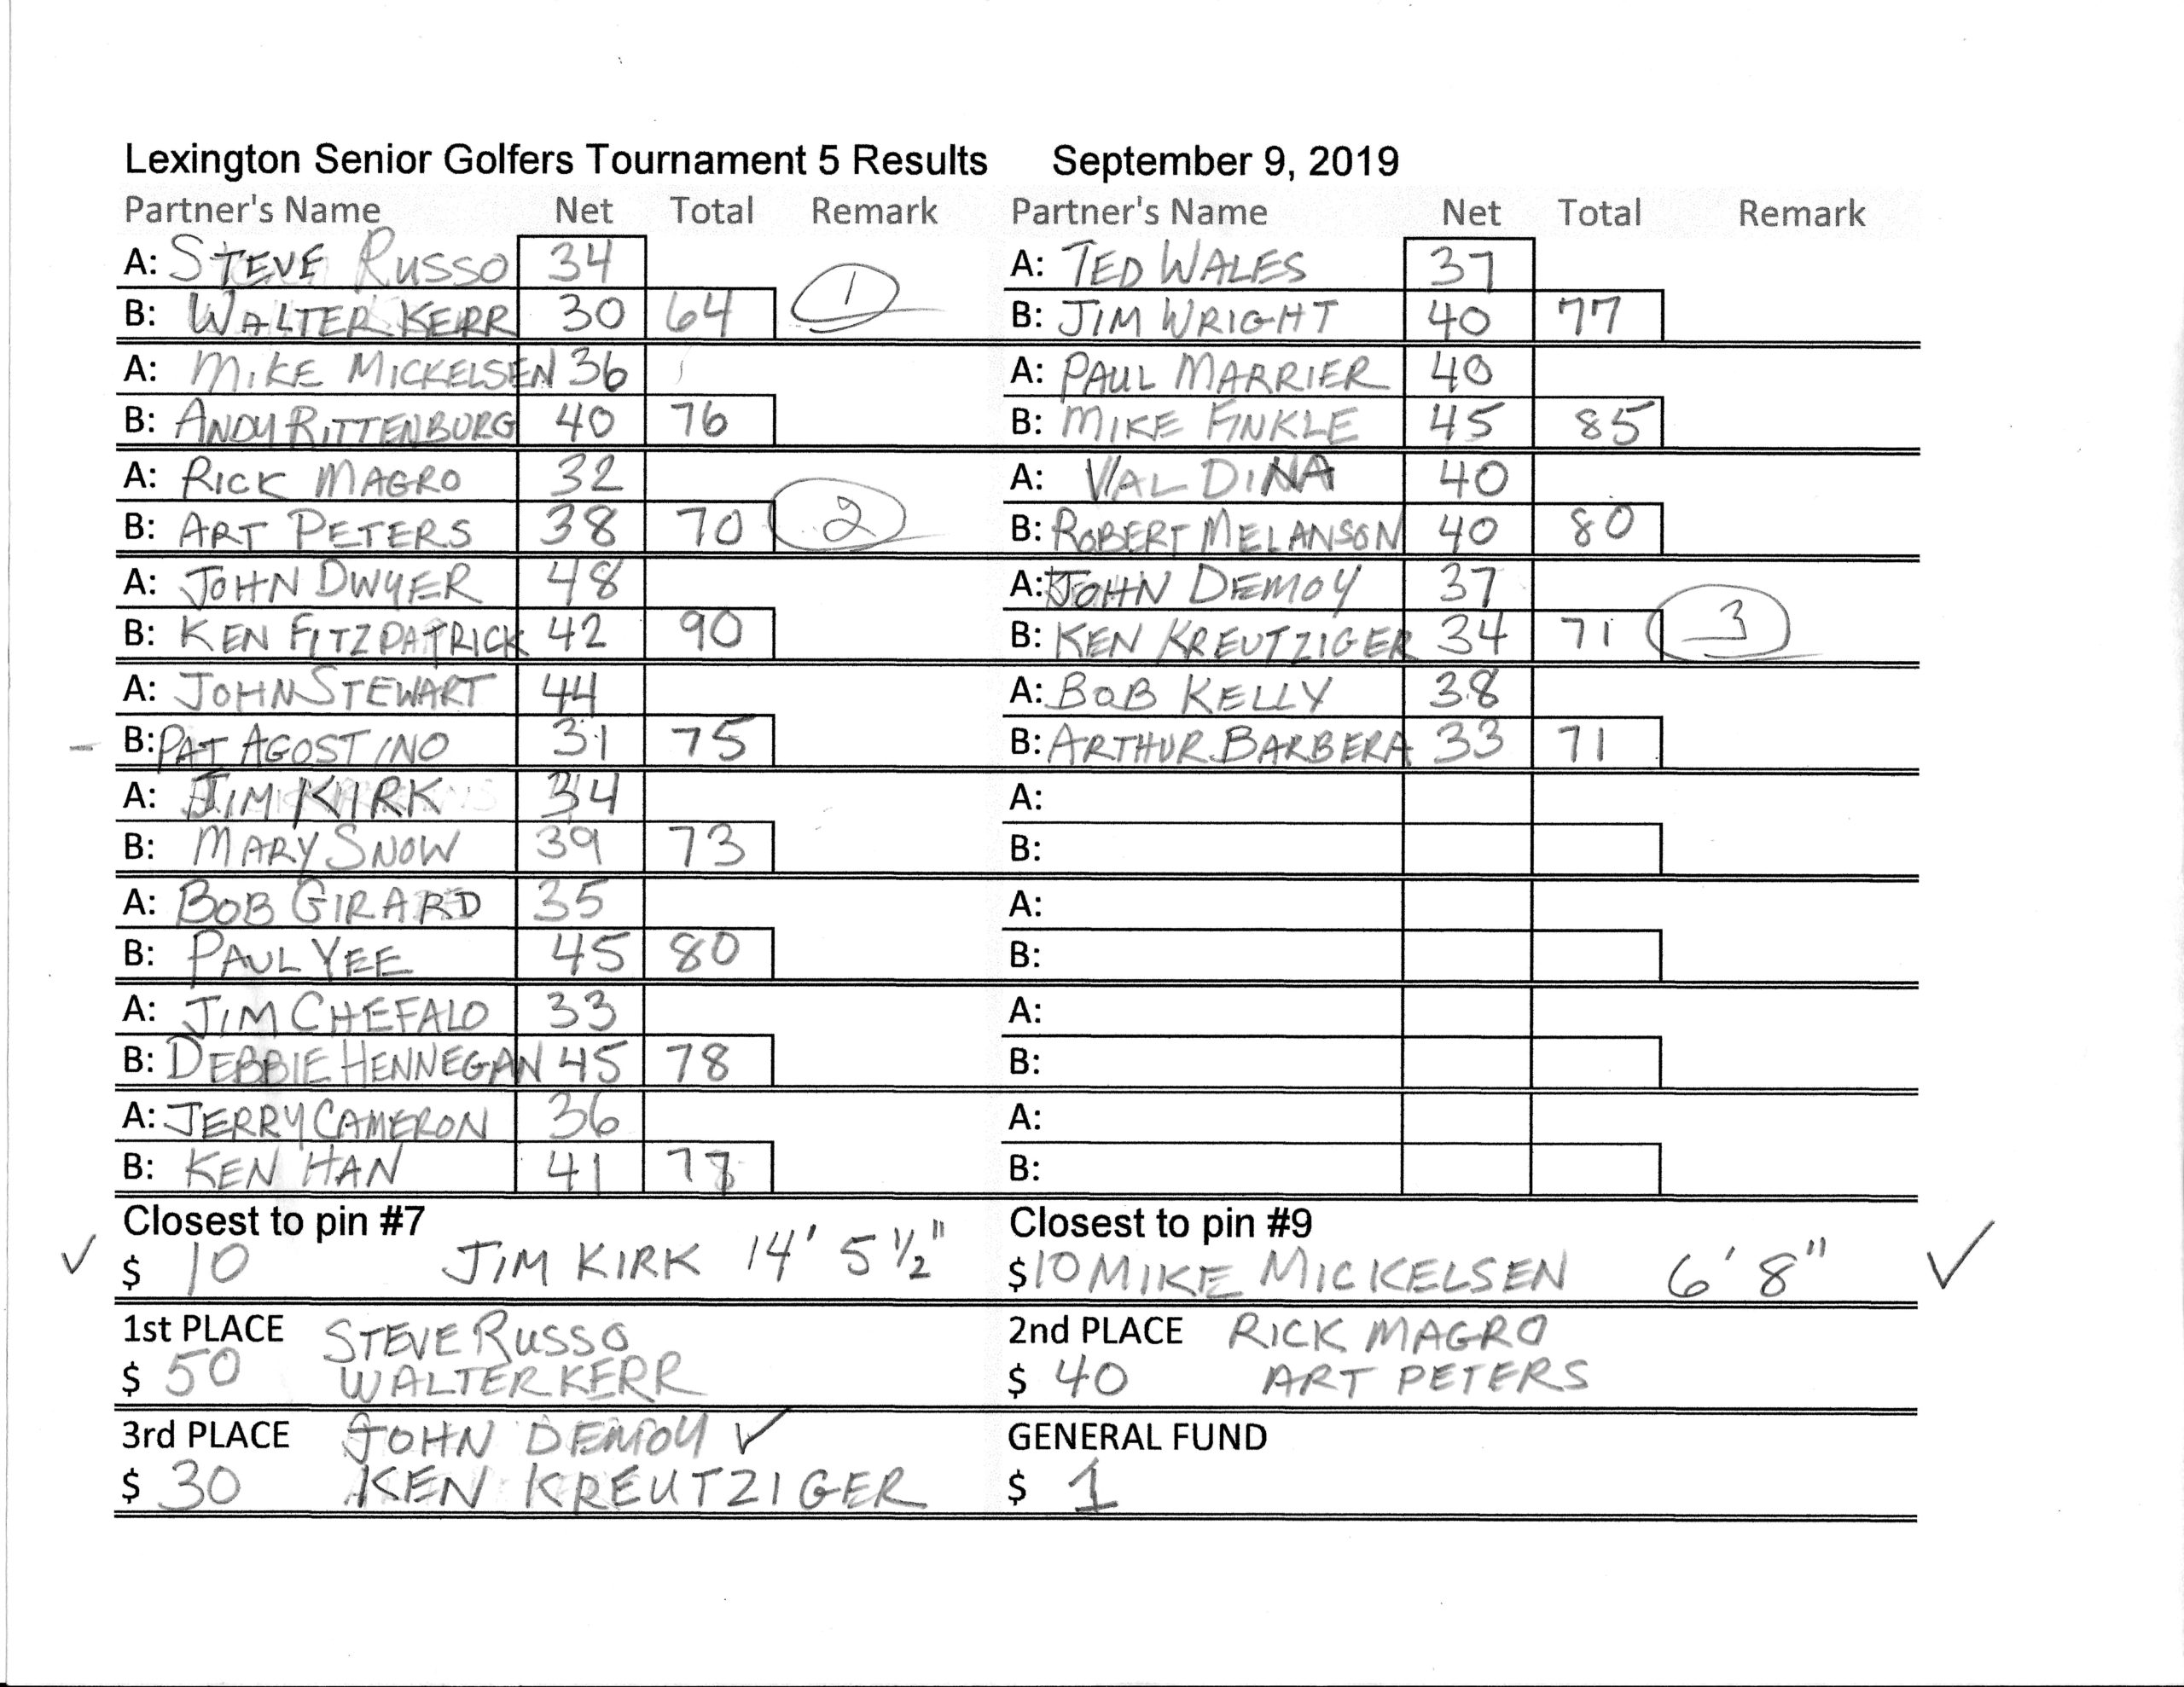 Lexington Senior Golfers Tournament 5 Results September 9, 2019
Partner's Name Net Total Remark Partner's Name Net Total Remark
A: STEVE RUSSO 34 A: TED WALES 37
B: WALTER KERR 30 64 1 B: JIM WRIGHT 40 77
A: MIKE MICKELSEN 36 A: PAUL MARRIER 40
B: ANDY RITTENBURG 40 76 B: MIKE FINKLE 45 85
A: RICK MAGRO 32 A: VAL DINA 40
B: ART PETERS 38 70 2 B: ROBERT MELANSON 40 80
A: JOHN DWYER 48 A: JOHN DEMOY 37
B: KEN FITZPATRICK 42 90 B: KEN KREUTZIGER 34 71 3
A: JOHN STEWART 44 A: BOB KELLY 38
B: PAT AGOSTINO 31 75 B: ARTHUR BARBERA 33 71
A: JIM KIRK 34 A:
B: MARY SNOW 39 73 B:
A: BOB GIRARD 35 A:
B: PAUL YEE 45 80 B:
A: JIM CHEFALO 33 A:
B: DEBBIE HENNEGAN 45 78 B:
A: JERRY CAMERON 36 A:
B: KEN HAN 41 B:
Closest to pin #7 Closest to pin #9
✓ $ 10 JIM KIRK 14' 5 1/2" $ 10 MIKE MICKELSEN 6' 8" ✓
1st PLACE STEVE RUSSO 2nd PLACE RICK MAGRO
$ 50 WALTER KERR $ 40 ART PETERS
3rd PLACE JOHN DEMOY ✓ GENERAL FUND
$ 30 KEN KREUTZIGER $ 1